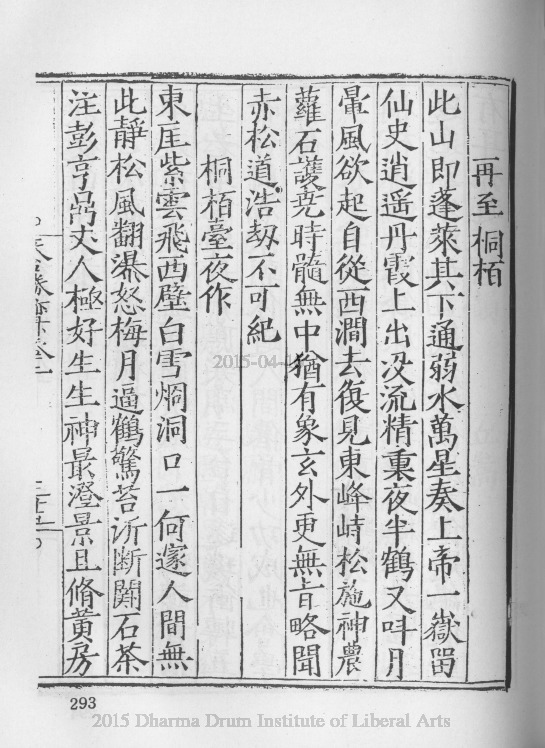 再至桐栢
此山即蓬萊其下通弱水萬星奏上帝一嶽畱
仙史逍遥丹霞上出没流精裏夜半鶴又呌月
暈風欲起自從西澗去復見東峰峙松施神農
蘿石護堯時髓無中猶有象玄外更無旨略聞
赤松道浩刼不可紀
桐栢臺夜作
東厓紫雲飛西壁白雪烱洞口一何邃人間無
此靜松風翻瀑怒梅月逼鶴驚苔斷闢石茶
注彭亨丈人極好生生神最澄景且脩黄房
293
2015-04-1
2015 Dharma Drum Institute of Liberal Arts